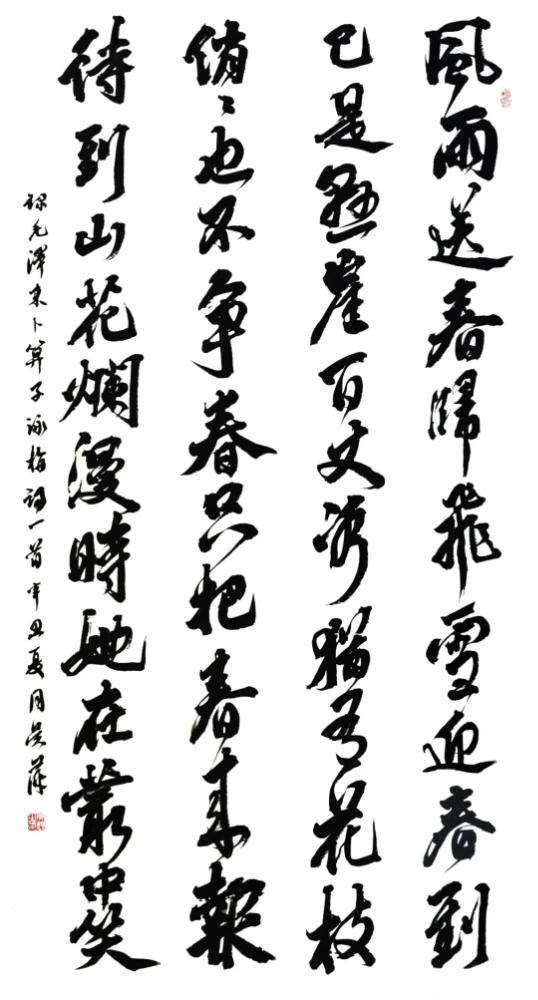 風雨送春歸飛雪迎春到
已是懸崖百丈冰猶有花枝
俏〻也不争春只把春来報
待到山花爛漫時她在叢中笑
録毛澤東卜算子詠梅詞一首辛丑夏月